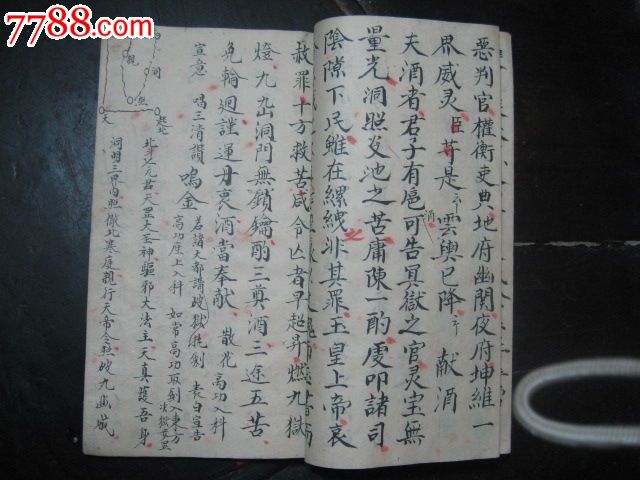 7788.com
中国收藏热线
惡判官權衡吏典地府幽関夜府坤維一
界威灵臣䓁是雲輿已降 献酒
夫酒者君子有扈可告冥獄之官灵宝無
酒
量光洞照及池之苦庸陳一酌虔叩諸司
陰隙下民雖在縲絏非其罪玉皇上帝哀
之
赦罪十方救苦咸令亾者早超昇燃九獄
燈九幽洞門無鎖鑰酌三奠酒三途五苦
免輪迴謹運丹衷酒當奉献 散花 高功入科
宣意 唱三清讚 鳴金 若諸大都讃破獄能創 表白宣告
高功座上入科 如常高功取劍入東方
次獄安置
北斗元君天罡大圣神驅邪大法主天真護吾身
洞明三界内照徹北寒庭親行天帝令照破九幽城
天